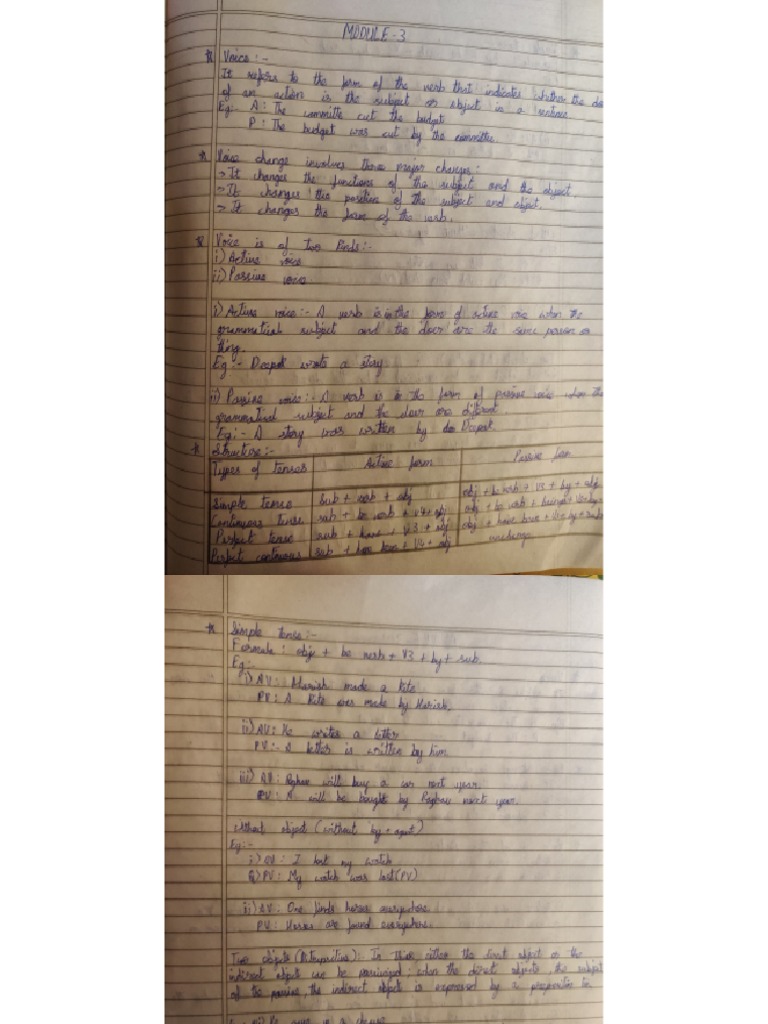 MODULE-3
* Voice :-
It refers to the form of the verb that indicates whether the doer
of an action is the subject or object in a sentence
Eg:- A : The committe cut the budget
P : The budget was cut by the committe.
* Voice change involves three major changes:-
→ It changes the functions of the subject and the object.
→ It changes the position of the subject and object.
→ It changes the form of the verb.
* Voice is of two kinds:-
i) Active voice
ii) Passive voice
i) Active voice :- A verb is in the form of active voice when the
grammatical subject and the doer are the same person or
thing.
Eg :- Deepak wrote a story
ii) Passive voice :- A verb is in the form of passive voice when the
grammatical subject and the doer are different.
Eg:- A story was written by Deepak.
* Structure:-
Types of tenses Active form Passive form
Simple tense sub + verb + obj obj + be verb + V3 + by + sub
Continuous tense sub + be verb + V4 + obj obj + be verb + being + V3 + by +
Perfect tense sub + have + V3 + obj obj + have been + V3 + by + sub
Perfect continuous sub + have been + V4 + obj
* Simple tense :-
Formula : obj + be verb + V3 + by + sub.
Eg:-
i) AV : Harish made a kite
PV : A kite was made by Harish.
ii) AV : He writes a letter
PV :- A letter is written by him
iii) AV : Raghav will buy a car next year.
PV : A will be bought by Raghav next year.
without object (without by + agent)
Eg:-
i) AV : I lost my watch
PV : My watch was lost (PV)
ii) AV : One finds horses everywhere.
PV : Horses are found everywhere.
Two objects : In this, either the direct object or the
indirect object can be passivized; when the direct objects, the subject
of the passive, the indirect object is expressed by a preposition to